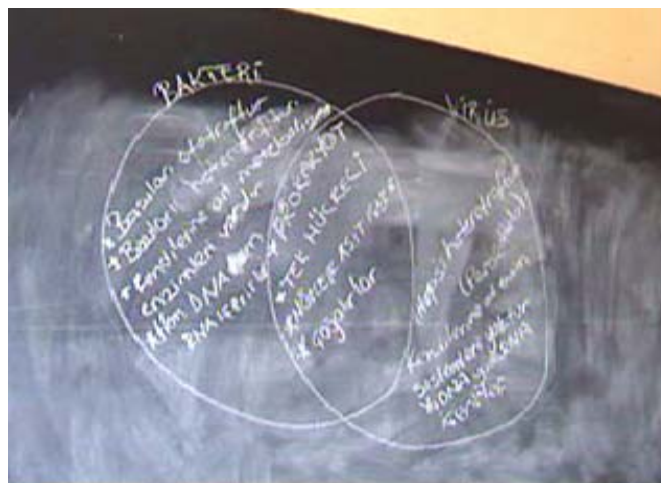 BAKTERİ
* Bazıları ototroftur
* Bazıları heterotroftur
* Kendilerine ait metabolizma
enzimleri vardır
* Hem DNA hem
RNA
* PROKARYOT
* TEK HÜCRELİ
* 
* Çoğalırlar
VİRÜS
Hepsi heterotroftur
(Parazittir)
Kendilerine ait enzim
sistemleri yoktur
DNA ya RNA